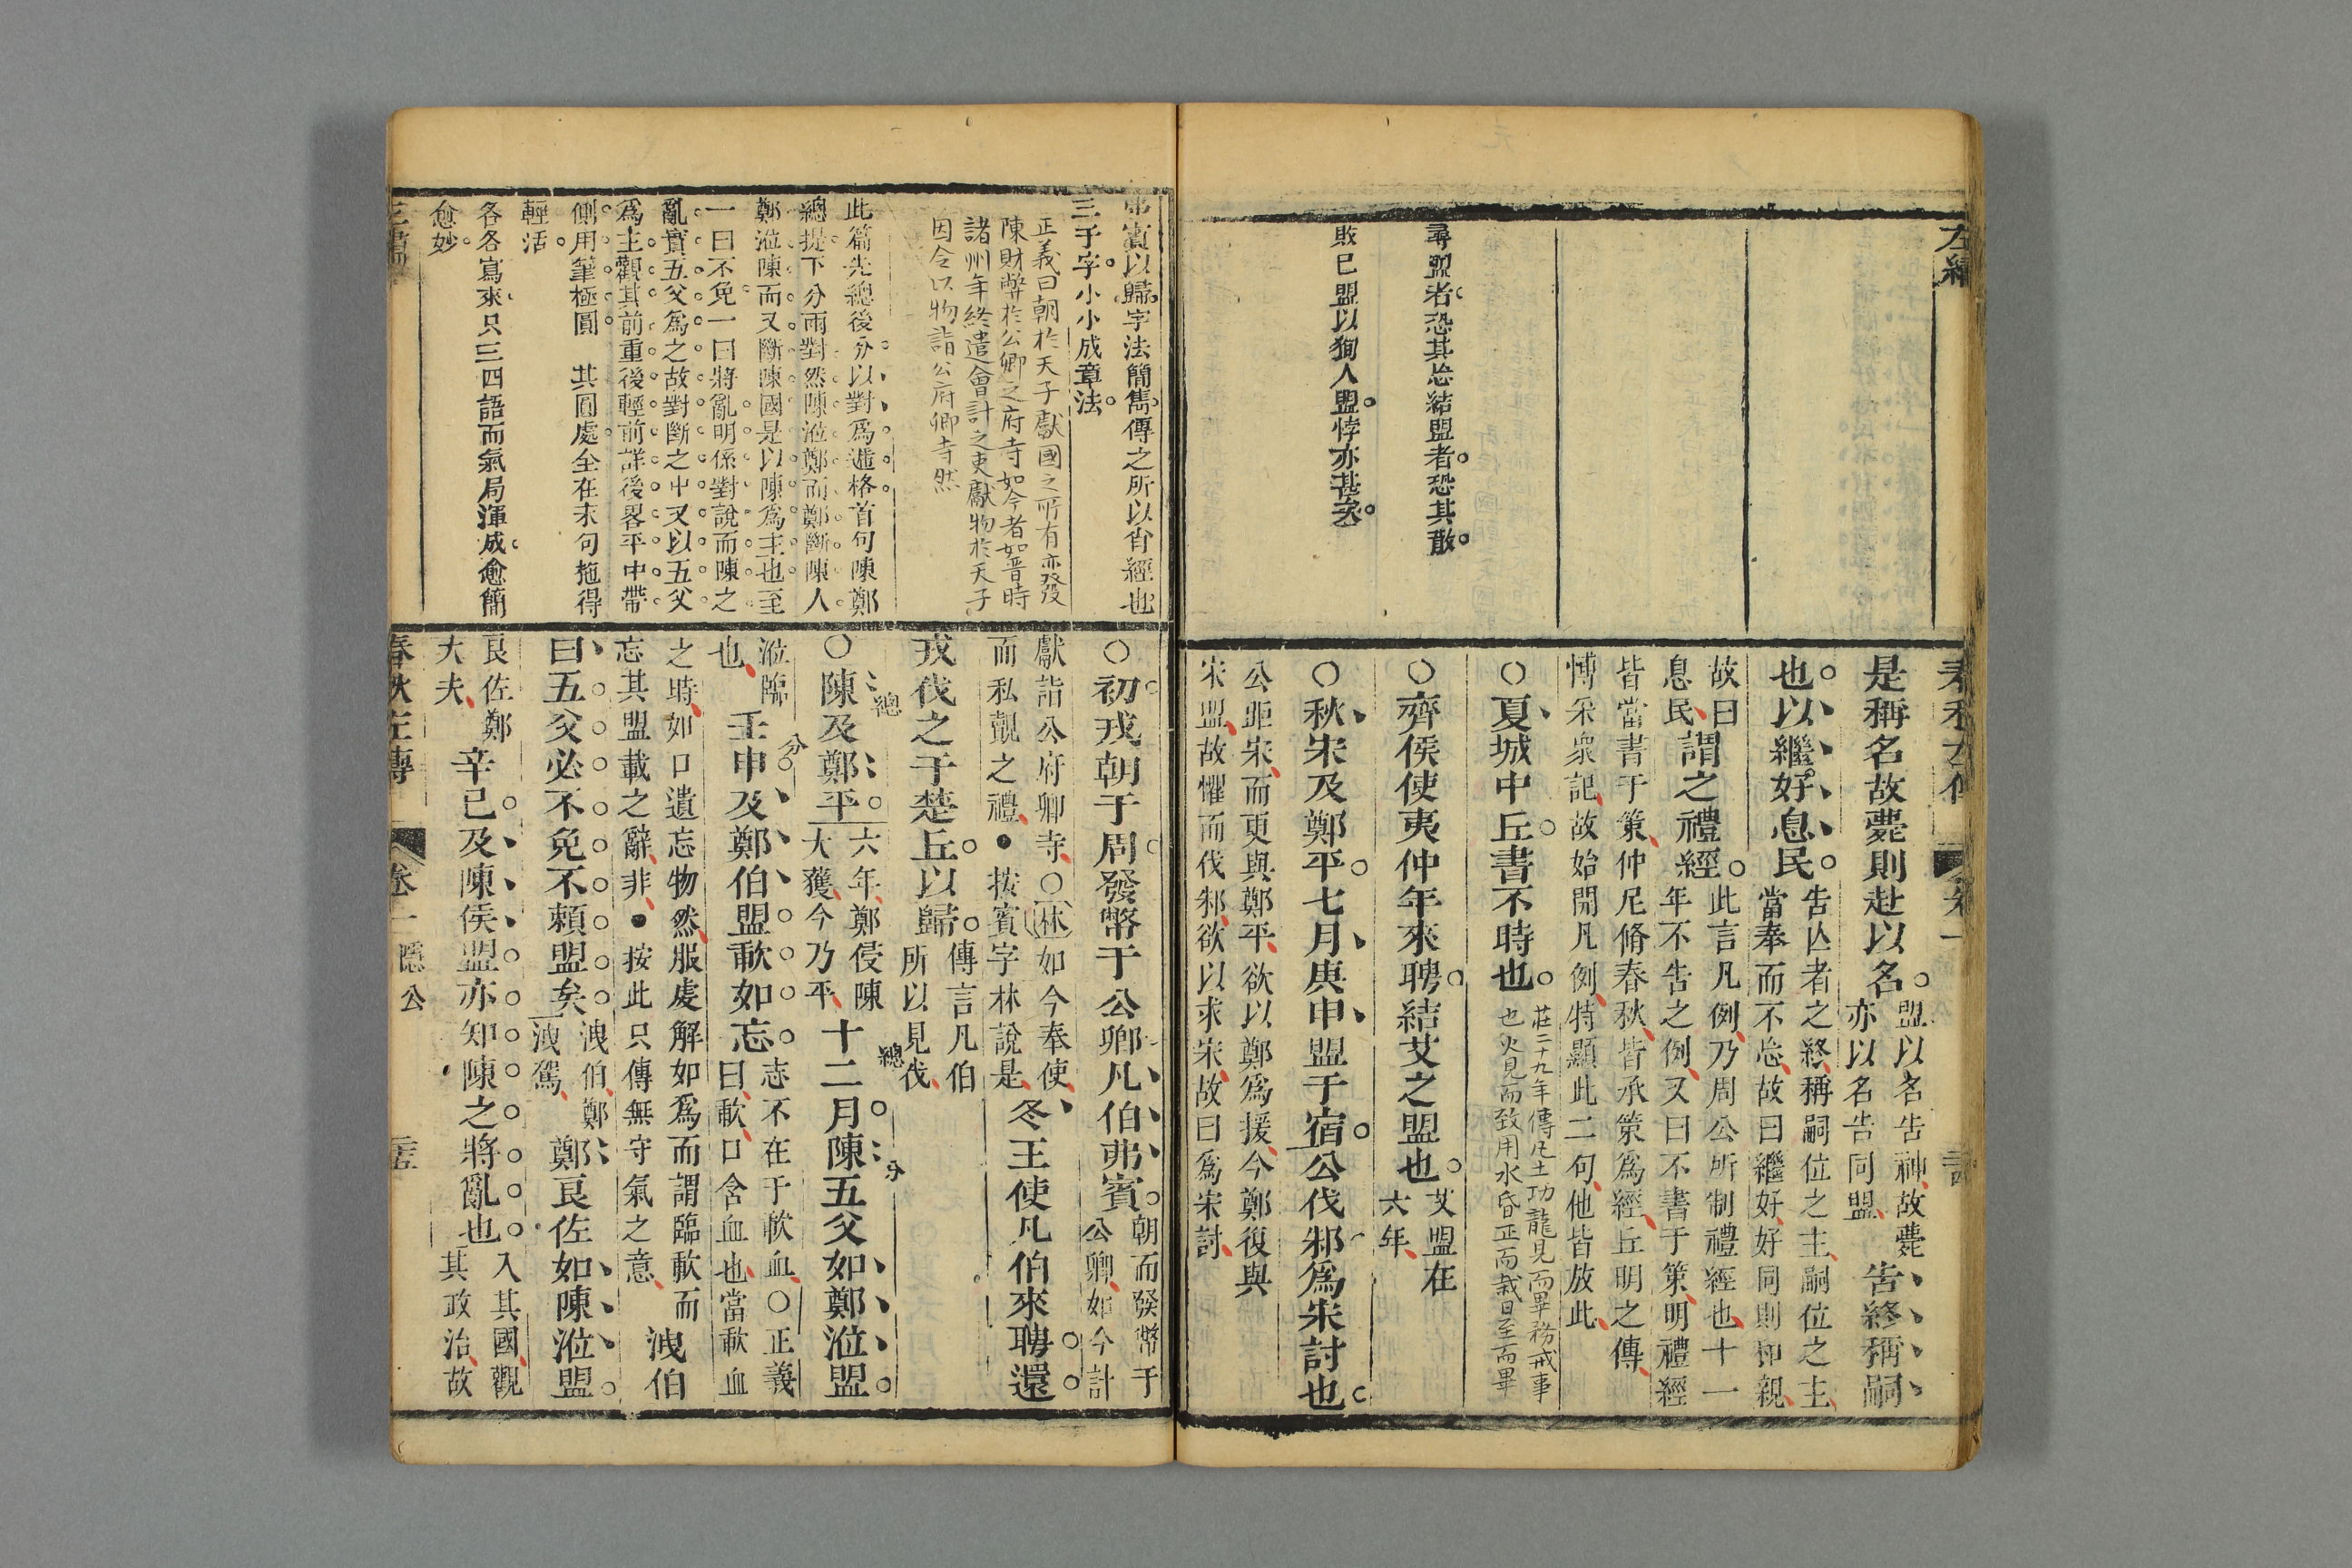 左繡
尋盟者恐其忘結盟者恐其散
敗已盟以狥人盟悖亦甚矣
是稱名故薨則赴以名
盟以名告神故薨
亦以名告同盟
告終稱嗣
也以繼好息民
告亾者之終稱嗣位之主嗣位之主
當奉而不忘故曰繼好好同則和親
故曰
息民
謂之禮經
此言凡例乃周公所制禮經也十一
年不告之例又曰不書于策明禮經
皆當書于策仲尼脩春秋皆承策為經丘明之傳
博采衆記故始開凡例特顯此二句他皆放此
○夏城中丘書不時也
莊二十九年傳凡土功龍見而畢務戒事
也火見而致用水昏正而栽日至而畢
○齊侯使夷仲年來聘結艾之盟也
艾盟在
六年
○秋宋及鄭平七月庚申盟于宿公伐邾爲宋討也
公距宋而更與鄭平欲以鄭爲援今鄭復與
宋盟故懼而伐邾欲以求宋故曰爲宋討
弗賓以歸字法簡雋傳之所以省經也
三于字小小成章法
正義曰朝於天子獻國之所有亦發
陳財幣於公卿之府寺如今者如晋時
諸州年終遣會計之吏獻物於天子
因令以物詣公府卿寺然
此篇先總後分以對爲遞格首句陳鄭
總提下分兩對然陳涖鄭而鄭斷陳人
鄭涖陳而又斷陳國是以陳爲主也至
一曰不免一曰將亂明係對說而陳之
亂實五父爲之故對斷之中又以五父
爲主觀其前重後輕前詳後畧平中帶
側用筆極圓 其圓處全在末句拖得
輕活
各各寫來只三四語而氣局渾成愈簡
愈妙
○初戎朝于周發幣于公卿凡伯弗賓
朝而發幣于
公卿如今計
獻詣公府卿寺○林如今奉使
而私覿之禮●按賓字林說是
冬王使凡伯來聘還
戎伐之于楚丘以歸
傳言凡伯
所以見伐
○陳及鄭平
總
六年鄭侵陳
大獲今乃平
十二月陳五父如鄭涖盟
總
分
涖臨
也
壬申及鄭伯盟歃如忘
分
志不在于歃血○正義
曰歃口含血也當歃血
之時如口遺忘物然服䖍解如爲而謂臨歃而
忘其盟載之辭非●按此只傳無守氣之意
洩伯
曰五父必不免不賴盟矣
洩伯鄭
洩駕
鄭良佐如陳涖盟
良佐鄭
大夫
辛巳及陳侯盟亦知陳之將亂也
入其國觀
其政治故
春秋左傳
卷一 隱公